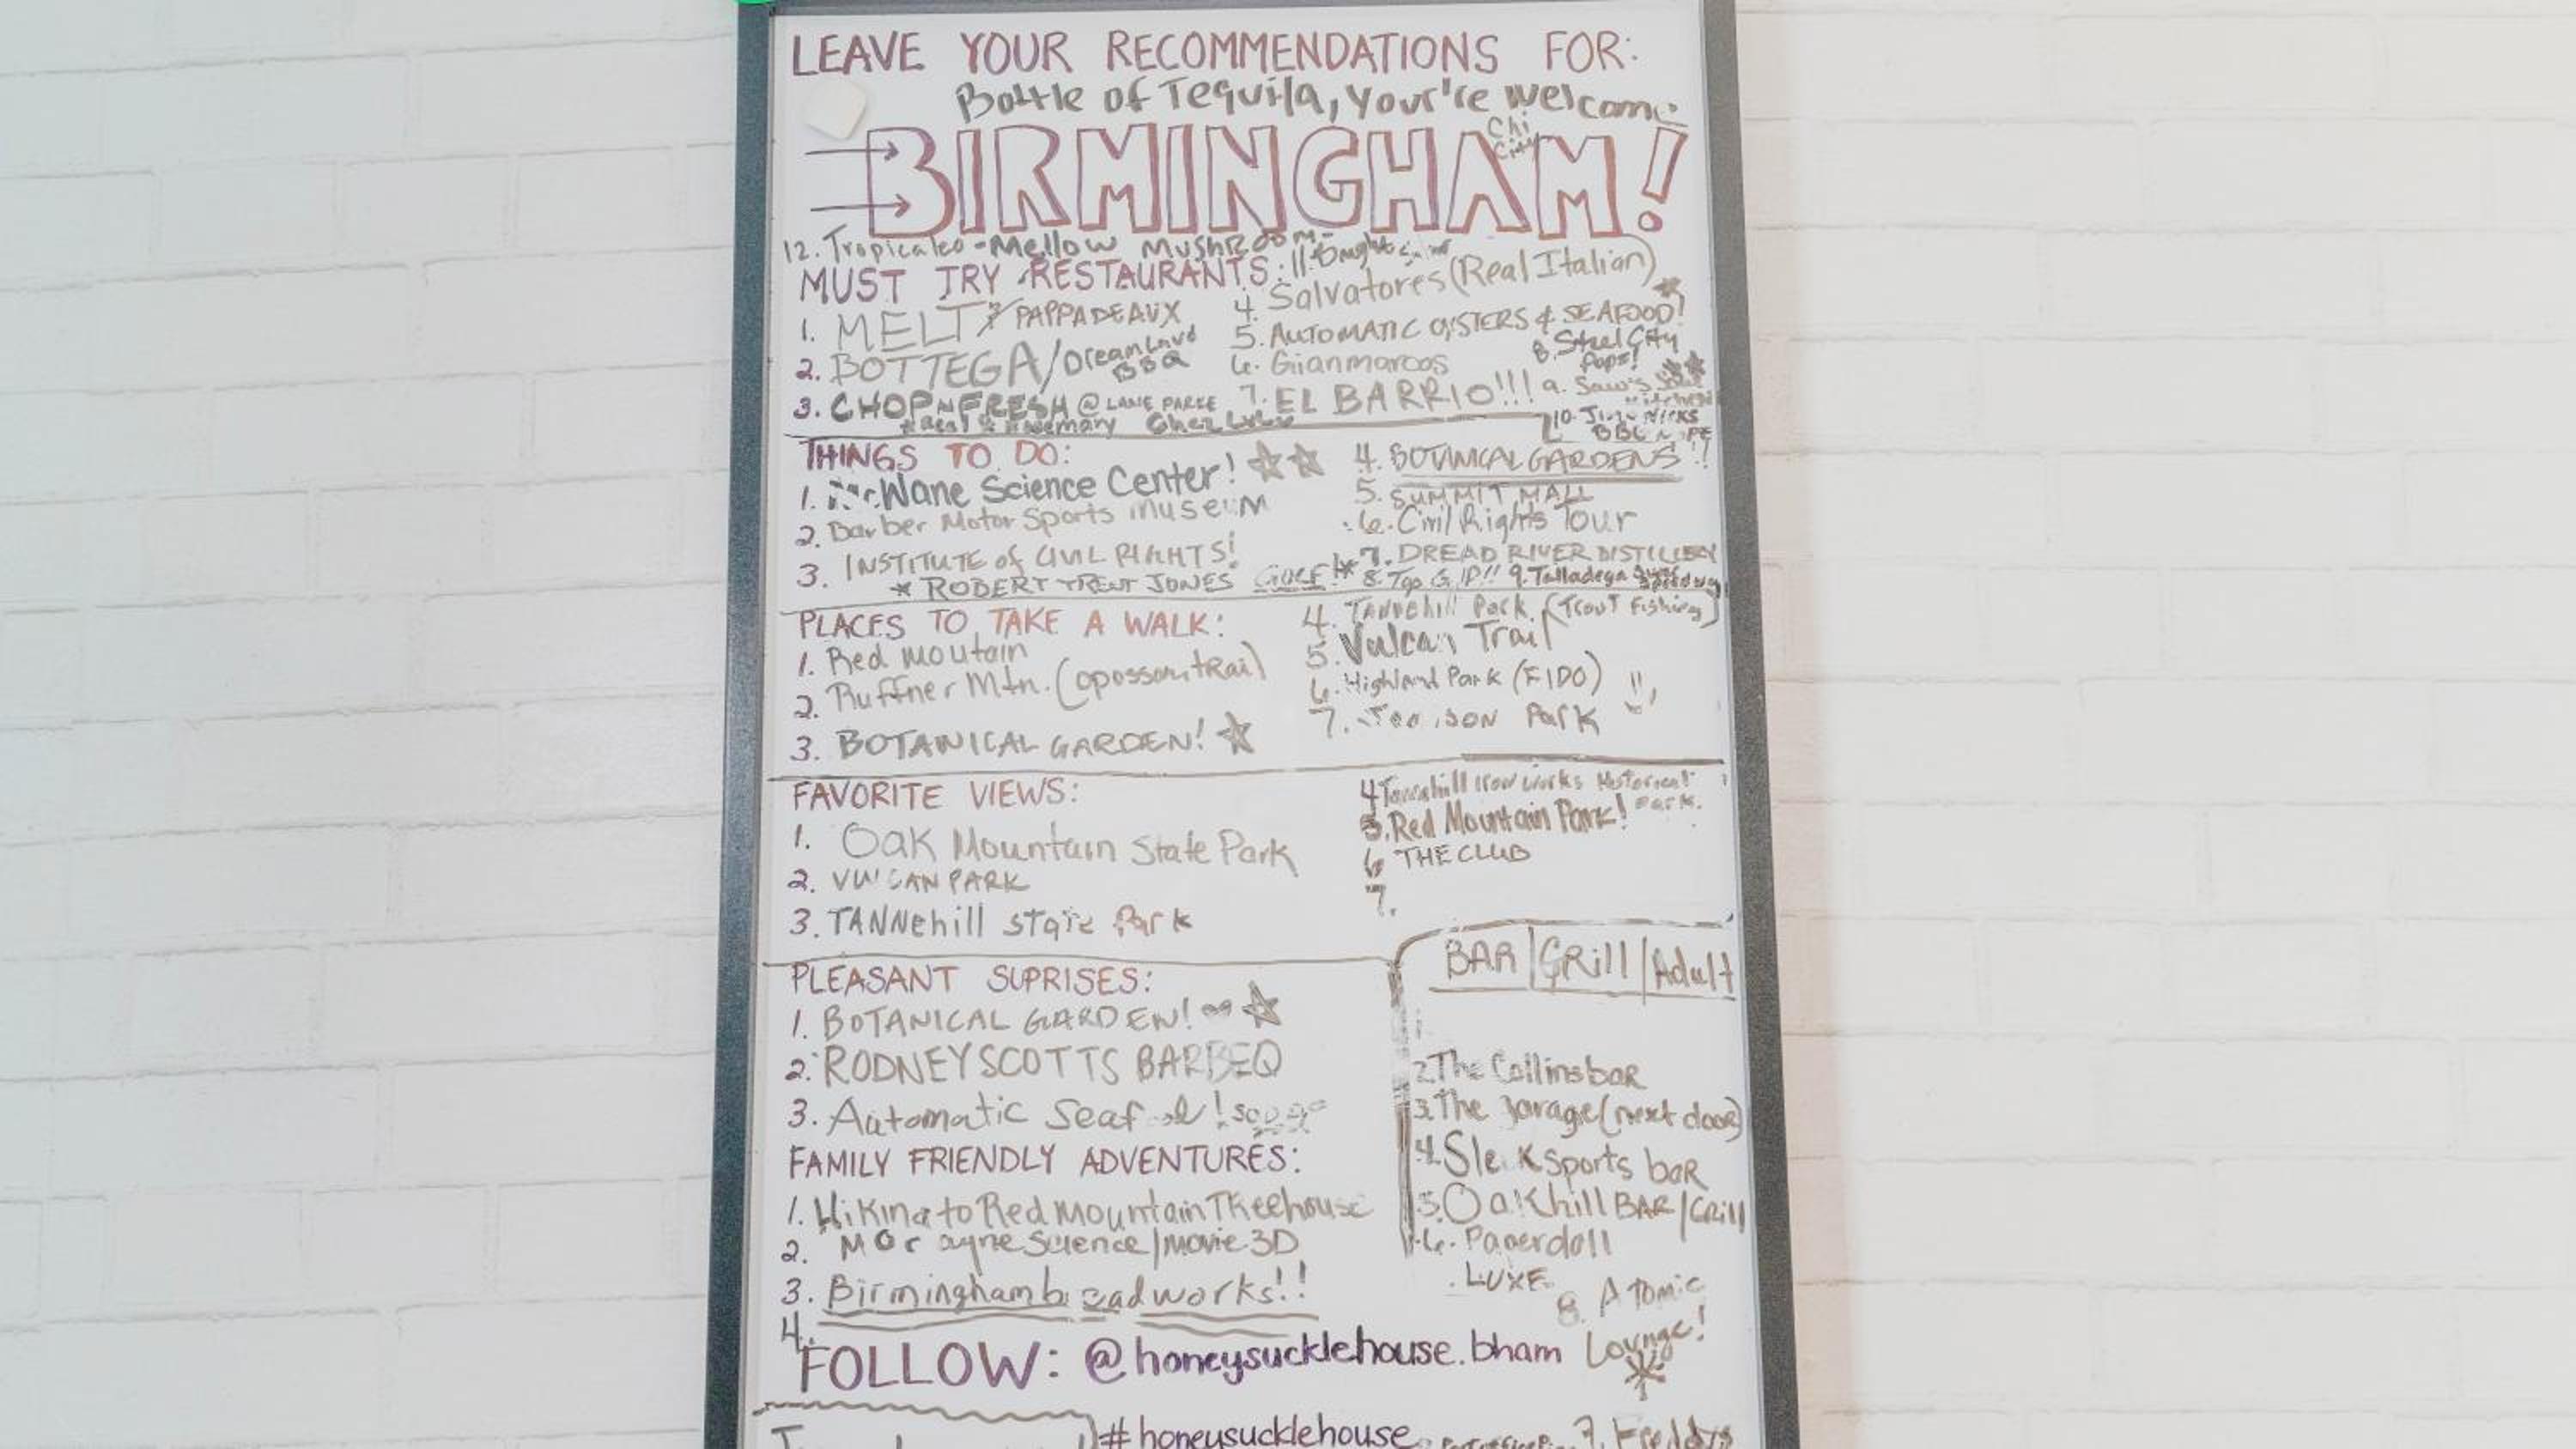 LEAVE YOUR RECOMMENDATIONS FOR:
Bottle of Tequila, Your're Welcome
Chi
City
BIRMINGHAM!
12. Tropicaleo - Mellow MushRoom -
MUST TRY RESTAURANTS: 11.
1. MELT / PAPPADEAUX
2. BOTTEGA / Dreamland BBQ
3. CHOPNFRESH @ LANE PARKE
Rosemary Chez Lulu
4. Salvatores (Real Italian)
5. AUTOMATIC OYSTERS & SEAFOOD!
6. Gianmarcos
7. EL BARRIO!!!
8. Steel City Pops!
9. Saw's Soul Kitchen
10. Jim N Nicks
THINGS TO DO:
1. McWane Science Center!
2. Barber Motor Sports Museum
3. INSTITUTE of CIVIL RIGHTS!
* ROBERT TRENT JONES GOLF!*
4. BOTANICAL GARDENS!!
5. SUMMIT MALL
6. Civil Rights Tour
7. DREAD RIVER DISTILLERY
8. Top Golf!! 9. Talladega Super Speedway
PLACES TO TAKE A WALK:
1. Red moutain
2. Ruffner Mtn. (opossom trail)
3. BOTANICAL GARDEN!
4. TANNehill Park (Trout Fishing)
5. Vulcan Trail
6. Highland Park (FIDO)
7. Park
FAVORITE VIEWS:
1. Oak Mountain State Park
2. VULCAN PARK
3. TANNehill state Park
4 Tannehill Iron works Historical Park.
5. Red Mountain Park!
6 THE CLUB
7.
PLEASANT SUPRISES:
1. BOTANICAL GARDEN!
2. RODNEY SCOTTS BARBEQ
3. Automatic Seafood!
FAMILY FRIENDLY ADVENTURES:
1. Hiking to Red Mountain TReehouse
2. Science / Movie 3D
3. Birmingham breadworks!!
4.
BAR | GRill | Adult
2. The Collins baR
3. The garage (next door)
4. Sle k Sports baR
5. Oakhill BAR / GRill
6. Paperdoll
LUXE
8. ATomic Lounge!
FOLLOW: @honeysucklehouse.bham
#honeysucklehouse
7. Freddys